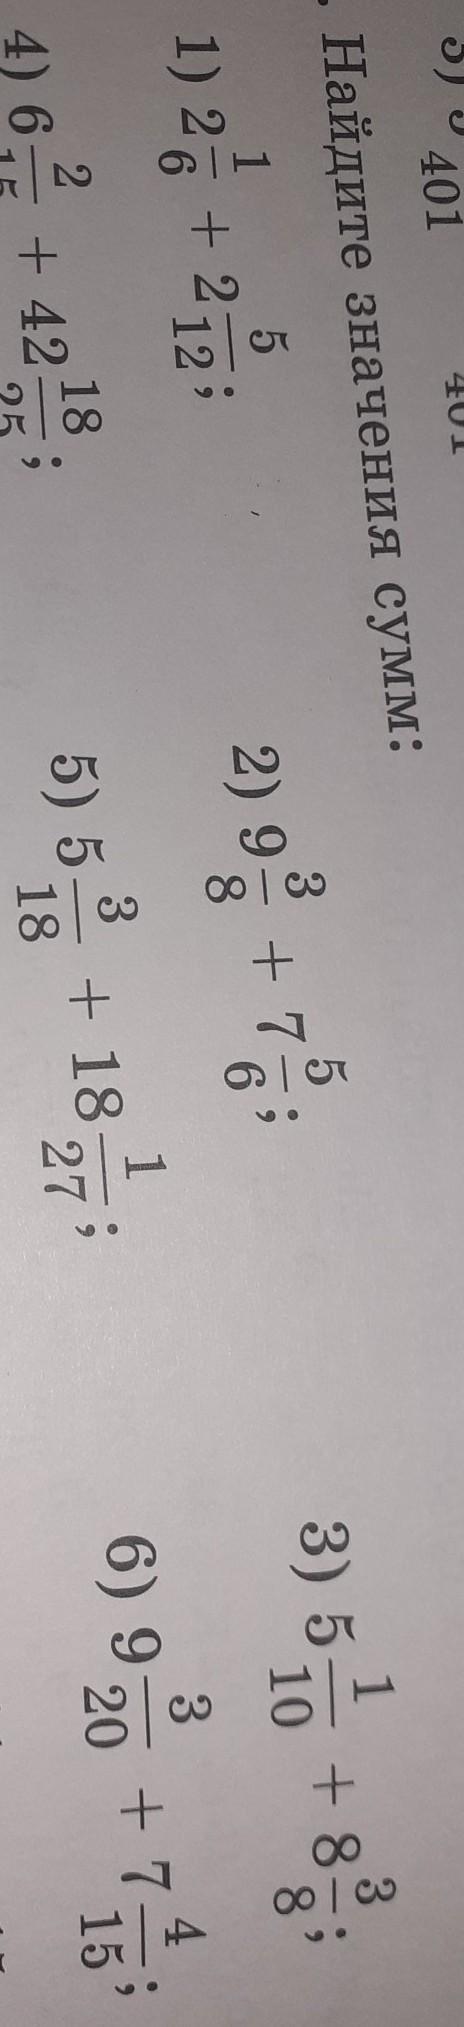 401 401
Найдите значения сумм:
1) 2 1/6 + 2 5/12; 2) 9 3/8 + 7 5/6; 3) 5 1/10 + 8 3/8;
4) 6 2/15 + 42 18/25; 5) 5 3/18 + 18 1/27; 6) 9 3/20 + 7 4/15;